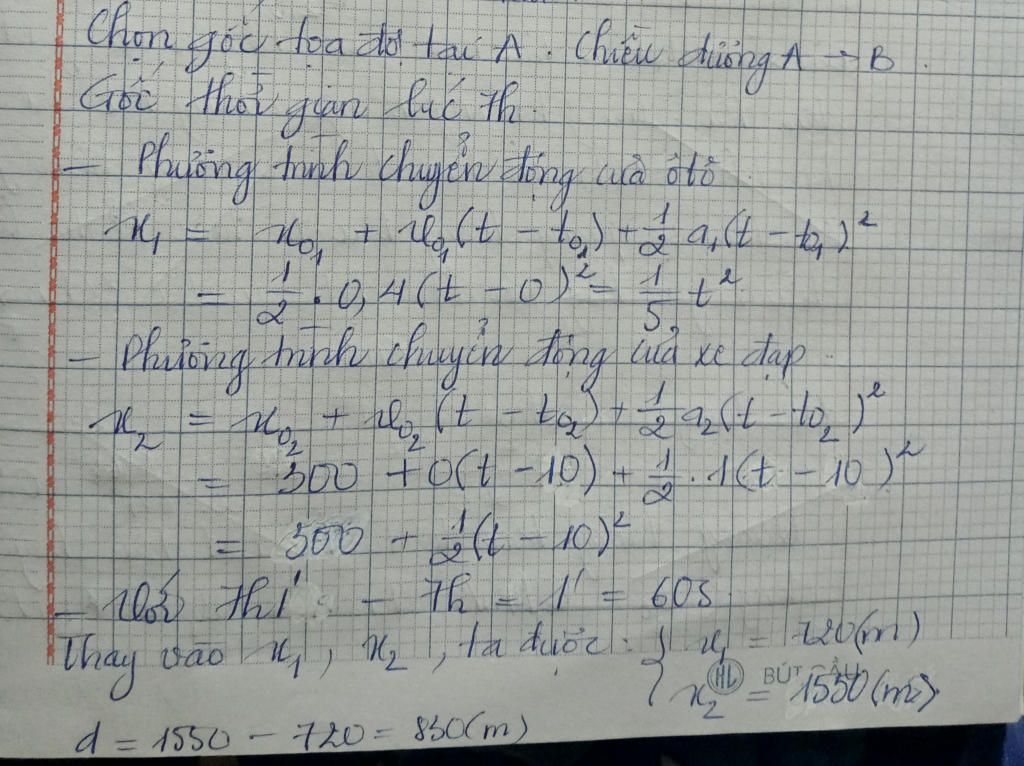 Chọn gốc tọa độ tại A. Chiều dương A → B.
Gốc thời gian lúc 7h.
- Phương trình chuyển động của ôtô
x₁ = x₀₁ + v₀₁(t - t₀₁) + 1/2 a₁(t - t₀₁)²
= 1/2 . 0,4(t - 0)² = 1/5 t²
- Phương trình chuyển động của xe đạp.
x₂ = x₀₂ + v₀₂(t - t₀₂) + 1/2 a₂(t - t₀₂)²
= 300 + 0(t - 10) + 1/2 . 1(t - 10)²
= 300 + 1/2(t - 10)²
- Với 7h1' - 7h = 1' = 60s
Thay vào x₁, x₂, ta được: { x₁ = 720(m)
HL BÚT
x₂ = 1550(m).
d = 1550 - 720 = 830(m)